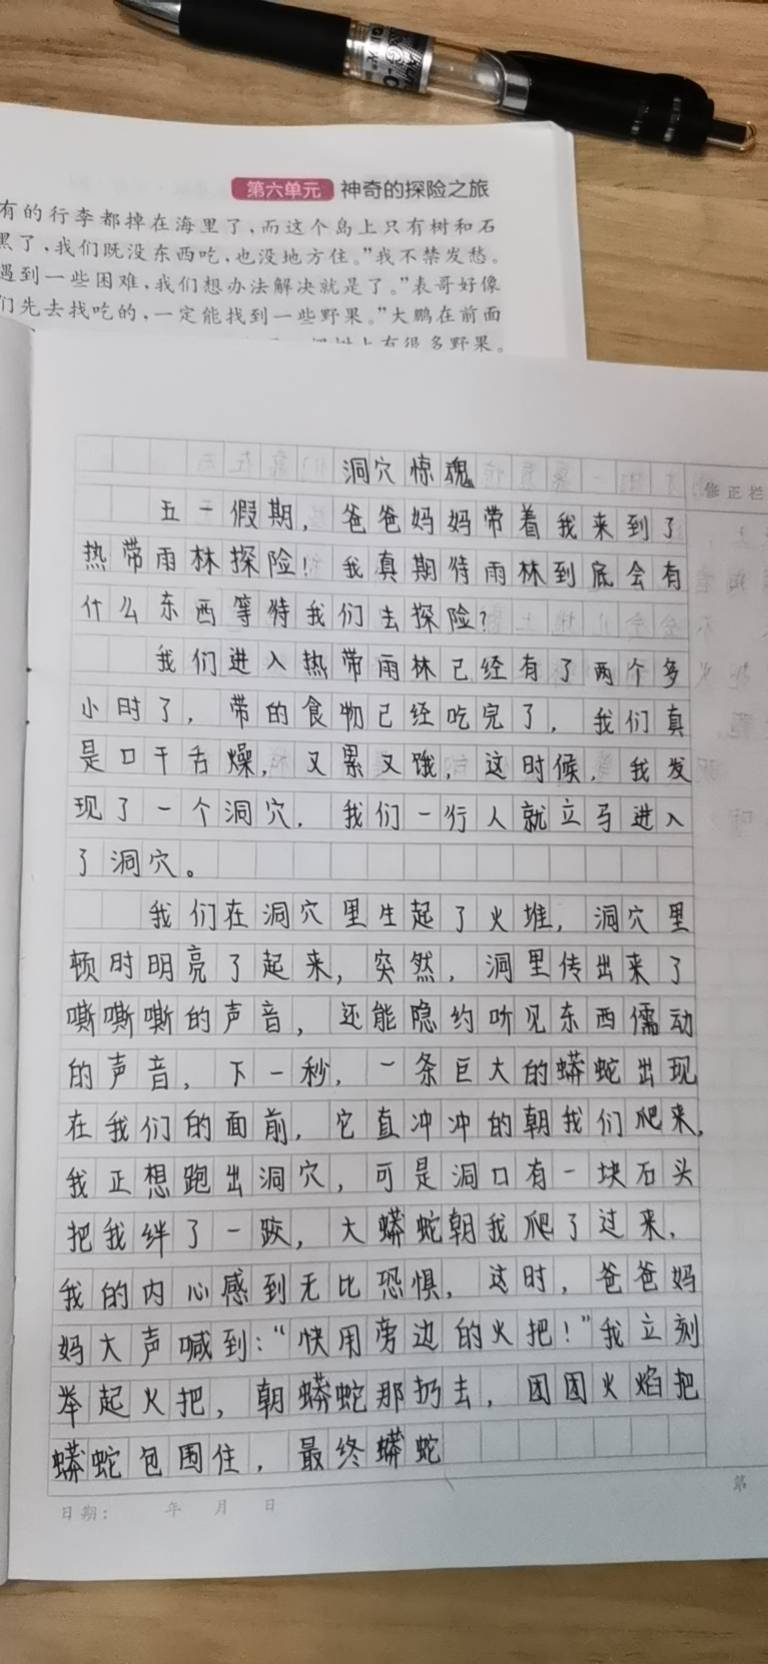 第六单元 神奇的探险之旅
有的行李都掉在海里了，而这个岛上只有树和石
黑了，我们既没东西吃，也没地方住。”我不禁发愁。
遇到一些困难，我们想办法解决就是了。”表哥好像
们先去找吃的，一定能找到一些野果。”大鹏在前面
树上有很多野果。
洞穴惊魂
修正栏
五一假期，爸爸妈妈带着我来到了
热带雨林探险！我真期待雨林到底会有
什么东西等待我们去探险？
我们进入热带雨林已经有了两个多
小时了，带的食物已经吃完了，我们真
是口干舌燥，又累又饿，这时候，我发
现了一个洞穴，我们一行人就立马进入
了洞穴。
我们在洞穴里生起了火堆，洞穴里
顿时明亮了起来，突然，洞里传出来了
嘶嘶嘶的声音，还能隐约听见东西儒动
的声音，下一秒，一条巨大的蟒蛇出现
在我们的面前，它直冲冲的朝我们爬来，
我正想跑出洞穴，可是洞口有一块石头
把我绊了一跤，大蟒蛇朝我爬了过来，
我的内心感到无比恐惧，这时，爸爸妈
妈大声喊到：“快用旁边的火把！”我立刻
举起火把，朝蟒蛇那扔去，团团火焰把
蟒蛇包围住，最终蟒蛇
日期： 年 月 日
第